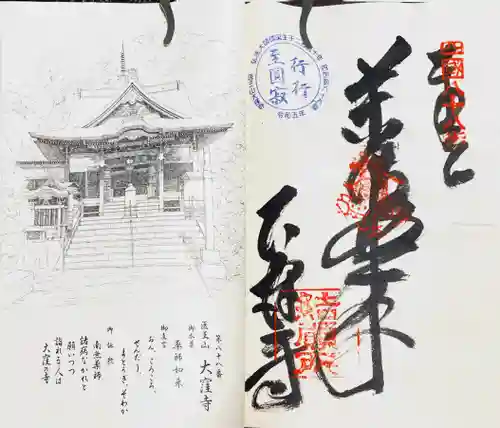 第八十八番
医王山 大窪寺
御本尊
薬師如来
御真言
おん、ころころ、
せんだり、
まとうぎ、そわか
御詠歌
南無薬師
諸病なかれと
願いつつ
詣れる人は
大窪の寺
行行
至円寂
令和五年
四國八十八番
奉
薬師如来
大窪寺
結願所